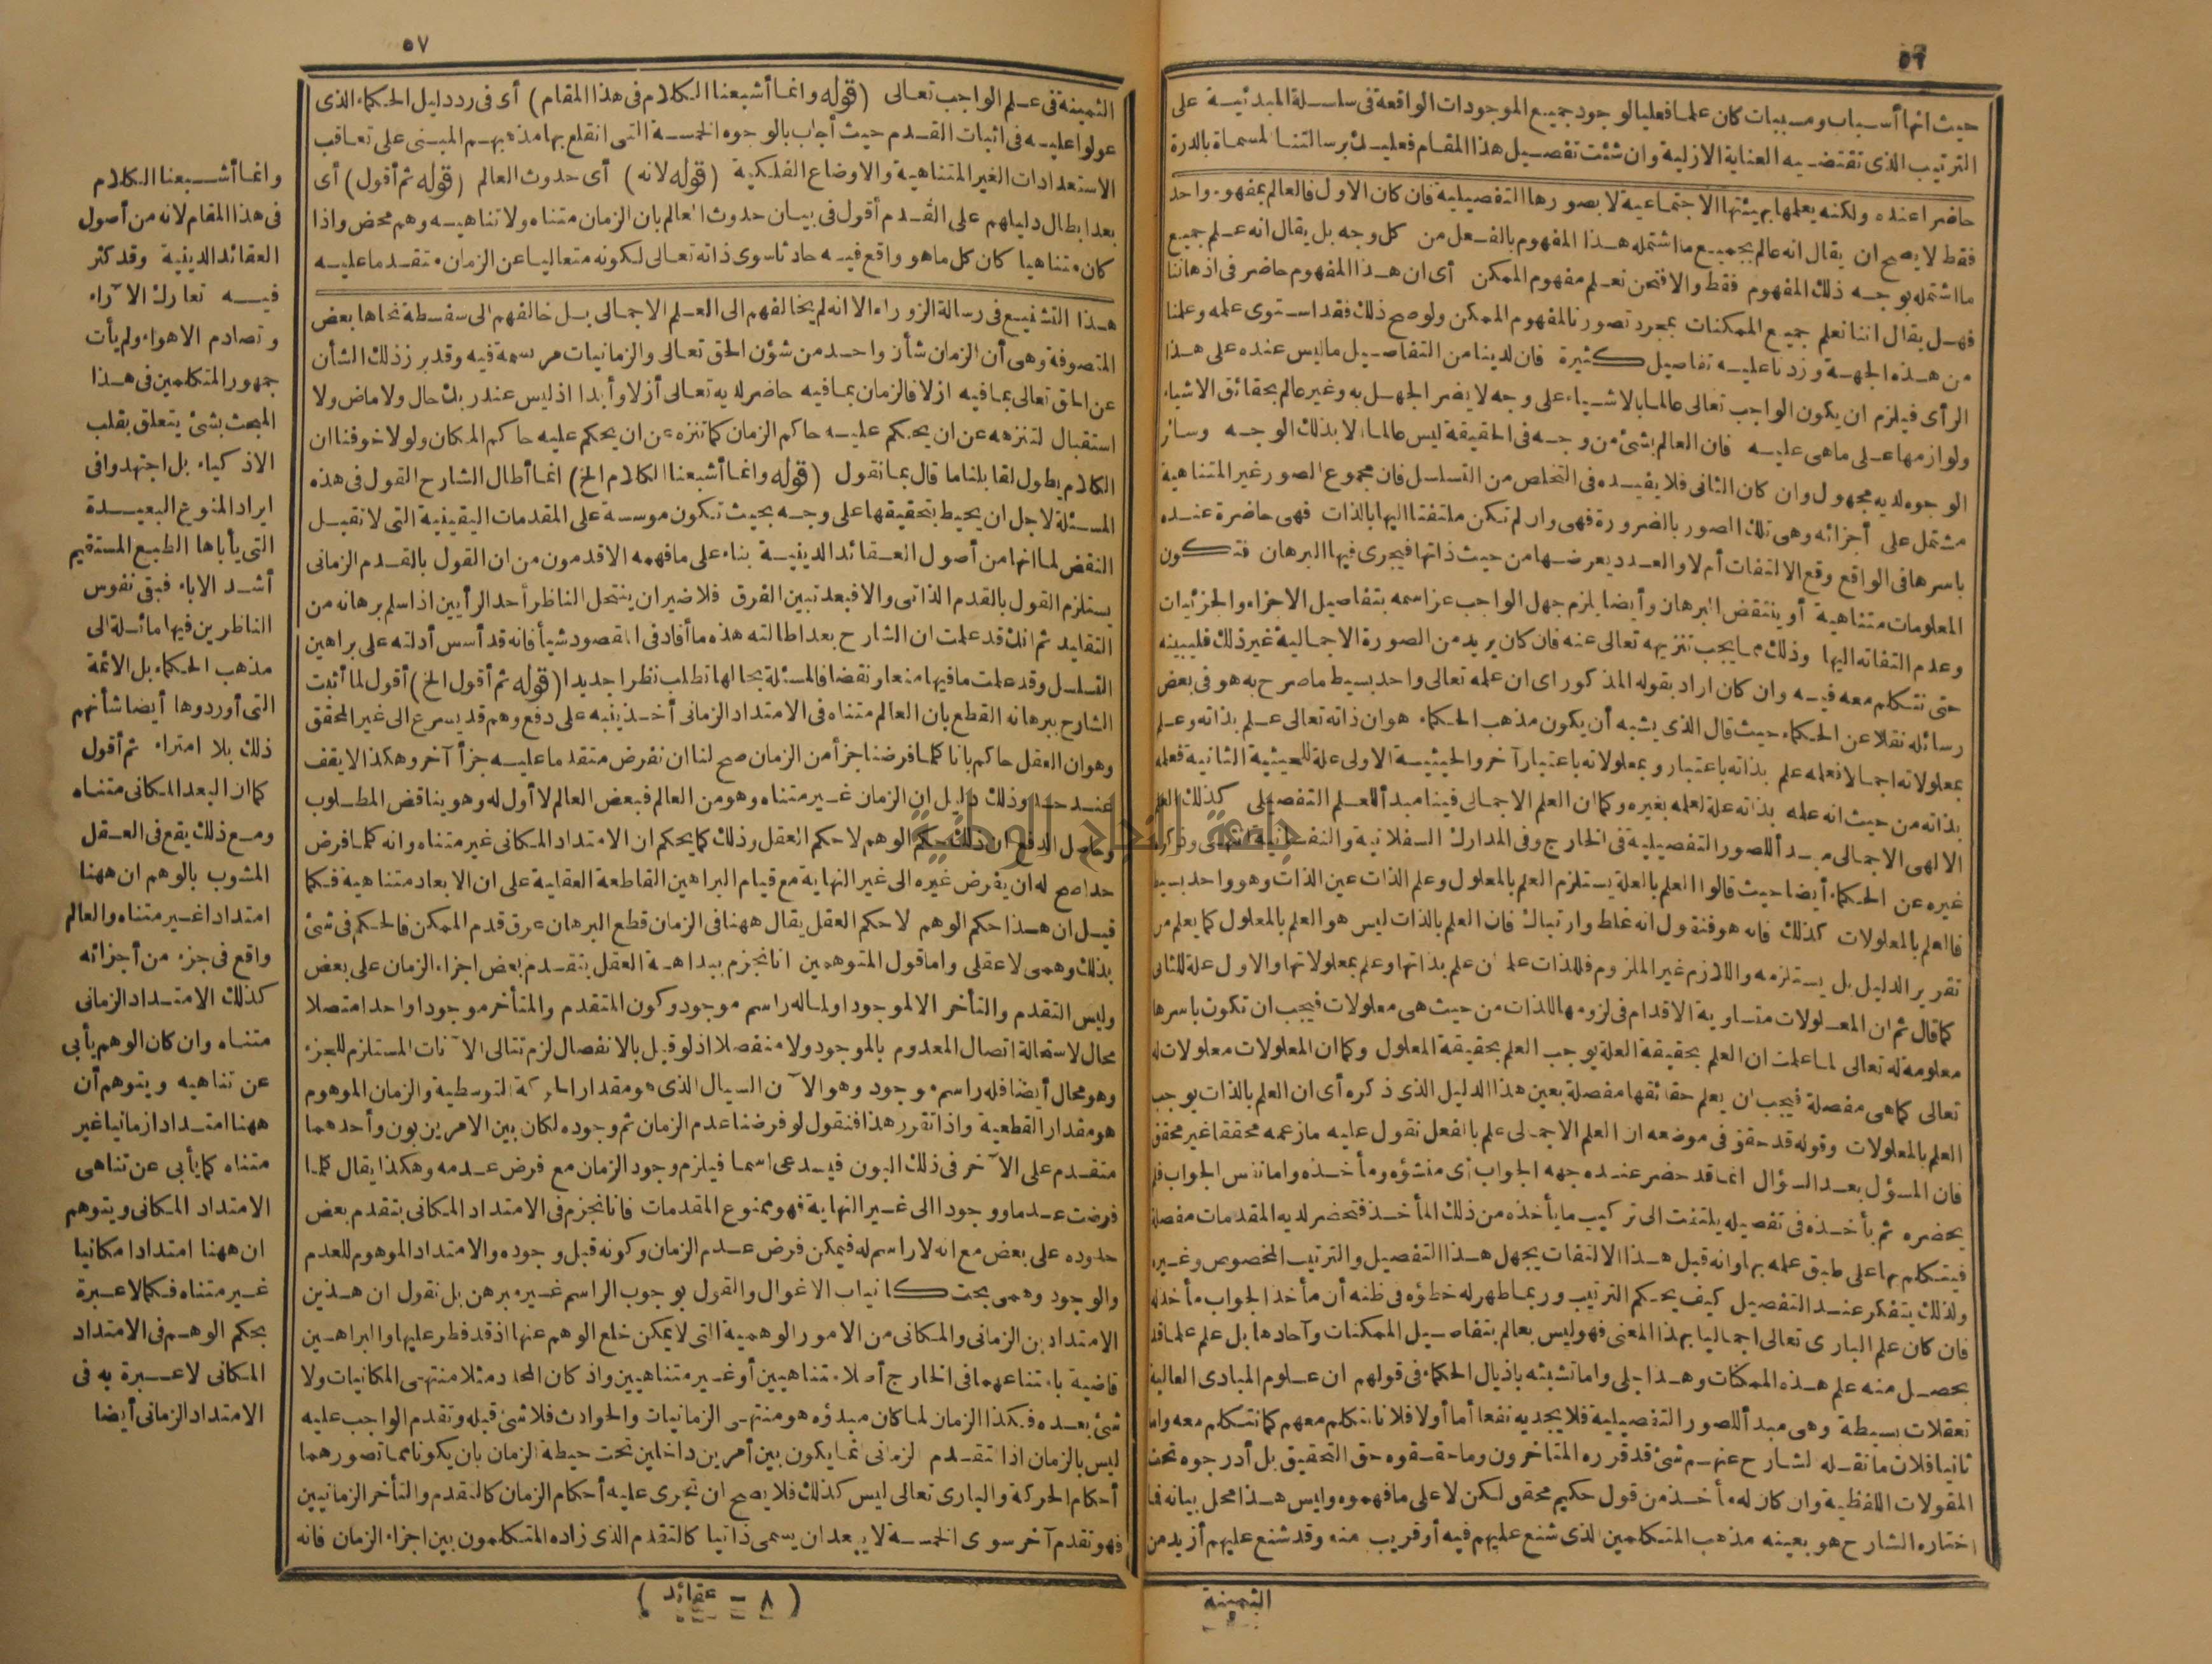 ٥٦
حيث انها أسباب ومسببات كان علما فعليا لوجود جميع الموجودات الواقعة فى سلسلة المبدئية على
الترتيب الذى تقتضيه العناية الازلية وان شئت تفصيل هذا المقام فعليك برسالتنا المسماة بالدرة
حاضرا عنده ولكنه يعلمها بهيئتها الاجتماعية لا بصورها التفصيلية فان كان الاول فالعالم بمفهوم واحد
فقط لا يصح ان يقال انه عالم بجميع ما اشتمله هذا المفهوم بالفعل من كل وجه بل يقال انه علم جميع
ما اشتمله بوجه ذلك المفهوم فقط والا فنحن نعلم مفهوم الممكن أى ان هذا المفهوم حاضر فى اذهاننا
فهل يقال اننا نعلم جميع الممكنات بمجرد تصورنا لمفهوم الممكن ولو صح ذلك فقد استوى علمه وعلمنا
من هذه الجهة وزدنا عليه تفاصيل كثيرة فان لدينا من التفاصيل ما ليس عنده على هذا
الرأى فيلزم ان يكون الواجب تعالى عالما بالاشياء على وجه لا يضر الجهل به وغير عالم بحقائق الاشياء
ولوازمها على ماهى عليه فان العالم بشئ من وجه فى الحقيقة ليس عالما الا بذلك الوجه وسائر
الوجوه لديه مجهول وان كان الثانى فلا يفيده فى التخلص من التسلسل فان مجموع الصور غير المتناهية
مشتمل على أجزائه وهى تلك الصور بالضرورة فهى وان لم تكن ملتفتا اليها بالذات فهى حاضرة عنده
باسرها فى الواقع وقع الالتفات أم لا والعدد يعرضها من حيث ذاتها فيجرى فيها البرهان فتكون
المعلومات متناهية أو ينتقض البرهان وأيضا يلزم جهل الواجب عز اسمه بتفاصيل الاجزاء والجزئيات
وعدم التفاته اليها وذلك مما يجب تنزيهه تعالى عنه فان كان يريد من الصورة الاجمالية غير ذلك فليبينه
حتى نتكلم معه فيه وان كان اراد بقوله المذكور اى ان علمه تعالى واحد بسيط ما صرح به هو فى بعض
رسائله نقلا عن الحكماء حيث قال الذى يشبه أن يكون مذهب الحكماء هو ان ذاته تعالى علم بذاته وعلم
بمعلولاته اجمالا فعلمه علم بذاته باعتبار وبمعلولاته باعتبار آخر والحيثية الاولى علة للحيثية الثانية فعلمه
بذاته من حيث انه علمه بذاته علة لعلمه بغيره وكما ان العلم الاجمالى فينا مبدأ للعلم التفصيلى كذلك العلم
الالهى الاجمالى مبدأ للصور التفصيلية فى الخارج وفى المدارك السفلانية والنفسانية انتهى وذكره
غيره عن الحكماء أيضا حيث قالوا العلم بالعلة يستلزم العلم بالمعلول وعلم الذات عين الذات وهو واحد بسيط
فالعلم بالمعلولات كذلك فانه هو فنقول انه غلط وارتباك فان العلم بالذات ليس هو العلم بالمعلول كما يعلم من
تقرير الدليل بل يستلزمه واللازم غير الملزوم فللذات علمان علم بذاتها وعلم بمعلولاتها والاول علة للثانى
كما قال ثم ان المعلولات متساوية الاقدام فى لزومها للذات من حيث هى معلولات فيجب ان تكون باسرها
معلومة له تعالى لما علمت ان العلم بحقيقة العلة يوجب العلم بحقيقة المعلول وكما ان المعلولات معلولات له
تعالى كما هى مفصلة فيجب ان يعلم حقائقها مفصلة بعين هذا الدليل الذى ذكره أى ان العلم بالذات يوجب
العلم بالمعلولات وقوله قد حقق فى موضعه ان العلم الاجمالى علم بالفعل نقول عليه ما زعمه محققا غير محقق
فان المسؤل بعد السؤال انما قد حضر عنده جهه الجواب أى منشؤه ومأخذه واما نفس الجواب فلم
يحضره ثم يأخذه فى تفصيله يلتفت الى تركيب ما يأخذه من ذلك المأخذ فتحضر لديه المقدمات مفصلة
فيتكلم بها على طبق علمه بها وانه قبل هذا الالتفات يجهل هذا التفصيل والترتيب المخصوص وغيره
ولذلك يتفكر عند التفصيل كيف يحكم الترتيب وربما ظهر له خطؤه فى ظنه أن مأخذ الجواب مأخذ له
فان كان علم البارى تعالى اجماليا بهذا المعنى فهو ليس بعالم بتفاصيل الممكنات وآحادها بل علم علما قد
يحصل منه علم هذه الممكنات وهذا جلى واما تشبثه باذيال الحكماء فى قولهم ان علوم المبادى العالية
تعقلات بسيطة وهى مبدأ للصور التفصيلية فلا يجديه نفعا أما أولا فلاننا نتكلم معهم كما نتكلم معه واما
ثانيا فلان ما نقله الشارح عنهم شئ قد قرره المتأخرون وما حققوه حق التحقيق بل أدرجوه تحت
المقولات اللفظية وان كان له مأخذ من قول حكيم محقق لكن لا على ما فهموه وليس هذا محل بيانه فما
اختاره الشارح هو بعينه مذهب المتكلمين الذى شنع عليهم فيه أو قريب منه وقد شنع عليهم أزيد من
الثمينة
٥٧
الثمينة فى علم الواجب تعالى (قوله وانما أشبعنا الكلام فى هذا المقام) أى فى رد دليل الحكماء الذى
عولوا عليه فى اثبات القدم حيث أجاب بالوجوه الخمسة التى انقلع بها مذهبهم المبنى على تعاقب
الاستعدادات الغير المتناهية والاوضاع الفلكية (قوله لانه) أى حدوث العالم (قوله ثم أقول) أى
بعد ابطال دليلهم على القدم أقول فى بيان حدوث العالم بان الزمان متناه ولا تناهيه وهم محض واذا
كان متناهيا كان كل ما هو واقع فيه حادثا سوى ذاته تعالى لكونه متعاليا عن الزمان متقدما عليه
هذا التشنيع فى رسالة الزوراء الا انه لم يخالفهم الى العلم الاجمالى بل خالفهم الى سفسطة نحاها بعض
المتصوفة وهى أن الزمان شأن واحد من شؤن الحق تعالى والزمانيات مرتسمة فيه وقد برز ذلك الشأن
عن الحق تعالى بما فيه ازلا فالزمان بما فيه حاضر لديه تعالى أزلا وأبدا اذ ليس عند ربك حال ولا ماض ولا
استقبال لتنزهه عن ان يحكم عليه حاكم الزمان كما تنزه عن ان يحكم عليه حاكم المكان ولولا خوفنا ان
الكلام يطول لقابلنا ما قال بما نقول (قوله وانما أشبعنا الكلام الخ) انما أطال الشارح القول فى هذه
المسئلة لاجل ان يحيط بتحقيقها على وجه بحيث تكون موسسة على المقدمات اليقينية التى لا تقبل
النقض لما انها من أصول العقائد الدينية بناء على ما فهمه الاقدمون من ان القول بالقدم الزمانى
يستلزم القول بالقدم الذاتى والا فبعد تبين الفرق فلا ضير ان ينتحل الناظر أحد الرأيين اذا سلم برهانه من
التقليد ثم انك قد علمت ان الشارح بعد اطالته هذه ما أفاد فى المقصود شيأ فانه قد أسس أدلته على براهين
التسلسل وقد علمت ما فيها منعا ونقضا فالمسئلة بحالها تطلب نظرا جديدا (قوله ثم أقول الخ) أقول لما أثبت
الشارح ببرهانه القطع بان العالم متناه فى الامتداد الزمانى أخذ ينبه على دفع وهم قد يسرع الى غير المحقق
وهو ان العقل حاكم بانا كلما فرضنا جزأ من الزمان صح لنا ان نفرض متقدما عليه جزأ آخر وهكذا لا يقف
عند حد وذلك دليل ان الزمان غير متناه وهو من العالم فبعض العالم لا أول له وهو يناقض المطلوب
وحاصل الدفع ان ذلك حكم الوهم لا حكم العقل وذلك كما يحكم ان الامتداد المكانى غير متناه وانه كلما فرض
حدا صح له ان يفرض غيره الى غير النهاية مع قيام البراهين القاطعة العقلية على ان الابعاد متناهية فكما
قيل ان هذا حكم الوهم لا حكم العقل يقال ههنا فى الزمان قطع البرهان عرق قدم الممكن فالحكم فى شئ
بذلك وهمى لا عقلى واما قول المتوهمين انا نجزم ببداهة العقل بتقدم بعض اجزاء الزمان على بعض
وليس التقدم والتأخر الا لموجود او لما له راسم موجود وكون المتقدم والمتأخر موجودا واحدا متصلا
محال لاستحالة اتصال المعدوم بالموجود ولا منفصلا اذ لو قيل بالانفصال لزم تتالى الآنات المستلزم للجزء
وهو محال أيضا فله راسم موجود وهو الآن السيال الذى هو مقدار الحركة التوسطية والزمان الموهوم
هو مقدار القطعية واذا تقرر هذا فنقول لو فرضنا عدم الزمان ثم وجوده لكان بين الامرين بون وأحدهما
متقدم على الآخر فى ذلك البون فيستدعى اسما فيلزم وجود الزمان مع فرض عدمه وهكذا يقال كلما
فرضت عدما ووجودا الى غير النهاية فهو ممنوع المقدمات فانا نجزم فى الامتداد المكانى بتقدم بعض
حدوده على بعض مع انه لا راسم له فيمكن فرض عدم الزمان وكونه قبل وجوده والامتداد الموهوم للعدم
والوجود وهمى بحت كانياب الاغوال والقول بوجوب الراسم غير مبرهن بل نقول ان هذين
الامتدادين الزمانى والمكانى من الامور الوهمية التى لا يمكن خلع الوهم عنها اذ قد فطر عليها والبراهين
قاضية بامتناعهما فى الخارج أصلا متناهيين أو غير متناهيين واذ كان المحدد مثلا منتهى المكانيات ولا
شئ بعده فكذا الزمان لما كان مبدؤه هو منتهى الزمانيات والحوادث فلا شئ قبله وتقدم الواجب عليه
ليس بالزمان اذ التقدم الزمانى انما يكون بين أمرين داخلين تحت حيطة الزمان بان يكونا مما تصورهما
أحكام الحركة والبارى تعالى ليس كذلك فلا يصح ان تجرى عليه أحكام الزمان كالتقدم والتأخر الزمانيين
فهو تقدم آخر سوى الخمسة لا يبعد ان يسمى ذاتيا كالتقدم الذى زاده المتكلمون بين اجزاء الزمان فانه
(٨ - عقائد)
وانما أشبعنا الكلام
فى هذا المقام لانه من أصول
العقائد الدينية وقد كثر
فيه تعارك الآراء
وتصادم الاهواء ولم يأت
جمهور المتكلمين فى هذا
المبحث بشئ يتعلق بقلب
الاذكياء بل اجتهدوا فى
ايراد المنوع البعيدة
التى يأباها الطبع المستقيم
أشد الاباء فبقى نفوس
الناظرين فيها مائلة الى
مذهب الحكماء بل الائمة
التى أوردوها أيضا شأنهم
ذلك بلا امتراء ثم أقول
كما ان البعد المكانى متناه
ومع ذلك يقع فى العقل
المشوب بالوهم ان ههنا
امتدادا غير متناه والعالم
واقع فى جزء من أجزائه
كذلك الامتداد الزمانى
متناه وان كان الوهم يأبى
عن تناهيه ويتوهم أن
ههنا امتدادا زمانيا غير
متناه كما يأبى عن تناهى
الامتداد المكانى ويتوهم
ان ههنا امتدادا مكانيا
غير متناه فكما لا عبرة
بحكم الوهم فى الامتداد
المكانى لا عبرة به فى
الامتداد الزمانى أيضا
جامعة النجاح الوطنية